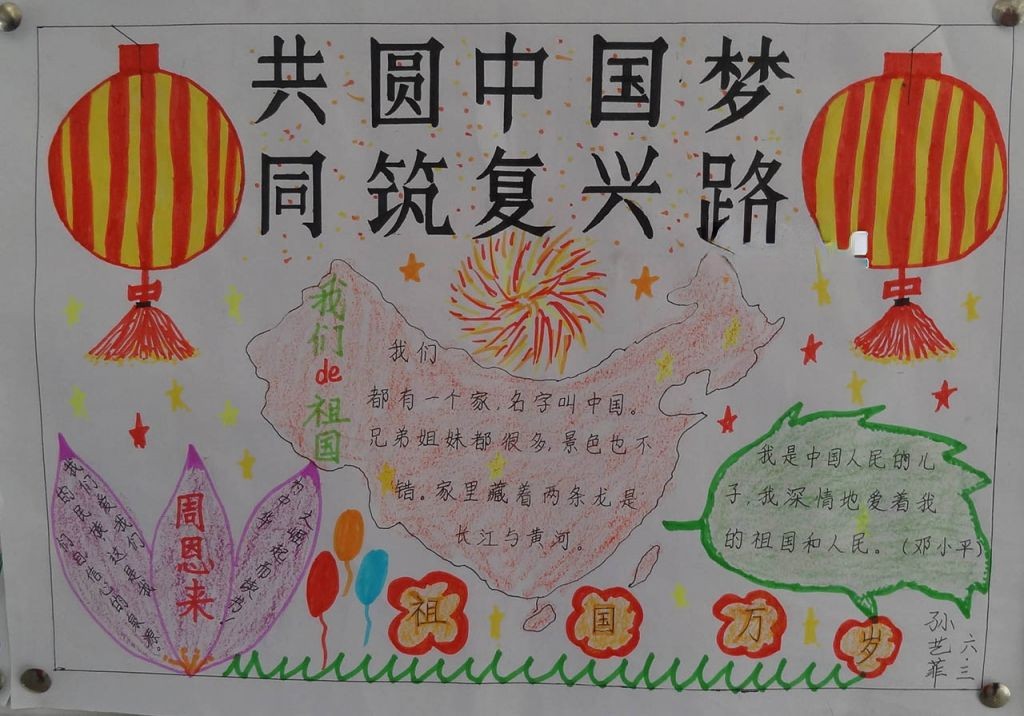 共圆中国梦
同筑复兴路
我们de祖国
我们
都有一个家,名字叫中国。
兄弟姐妹都很多,景色也不
错。家里藏着两条龙是
长江与黄河。
我是中国人民的儿
子,我深情地爱着我
的祖国和人民。(邓小平)
我们爱我们
的民族,这是我
们自信心的泉源。
周恩来
中华
崛起而读书!
祖国万岁
孙艺菲
六.三